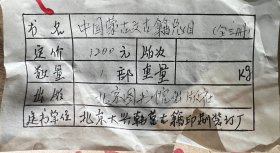 书名 中国蒙古文古籍总目 (全三册)
定价 1200元 版次
数量 1部 重量 Kg
出版 北京图书馆出版社
定书单位 北京大兴 古籍印刷装订厂